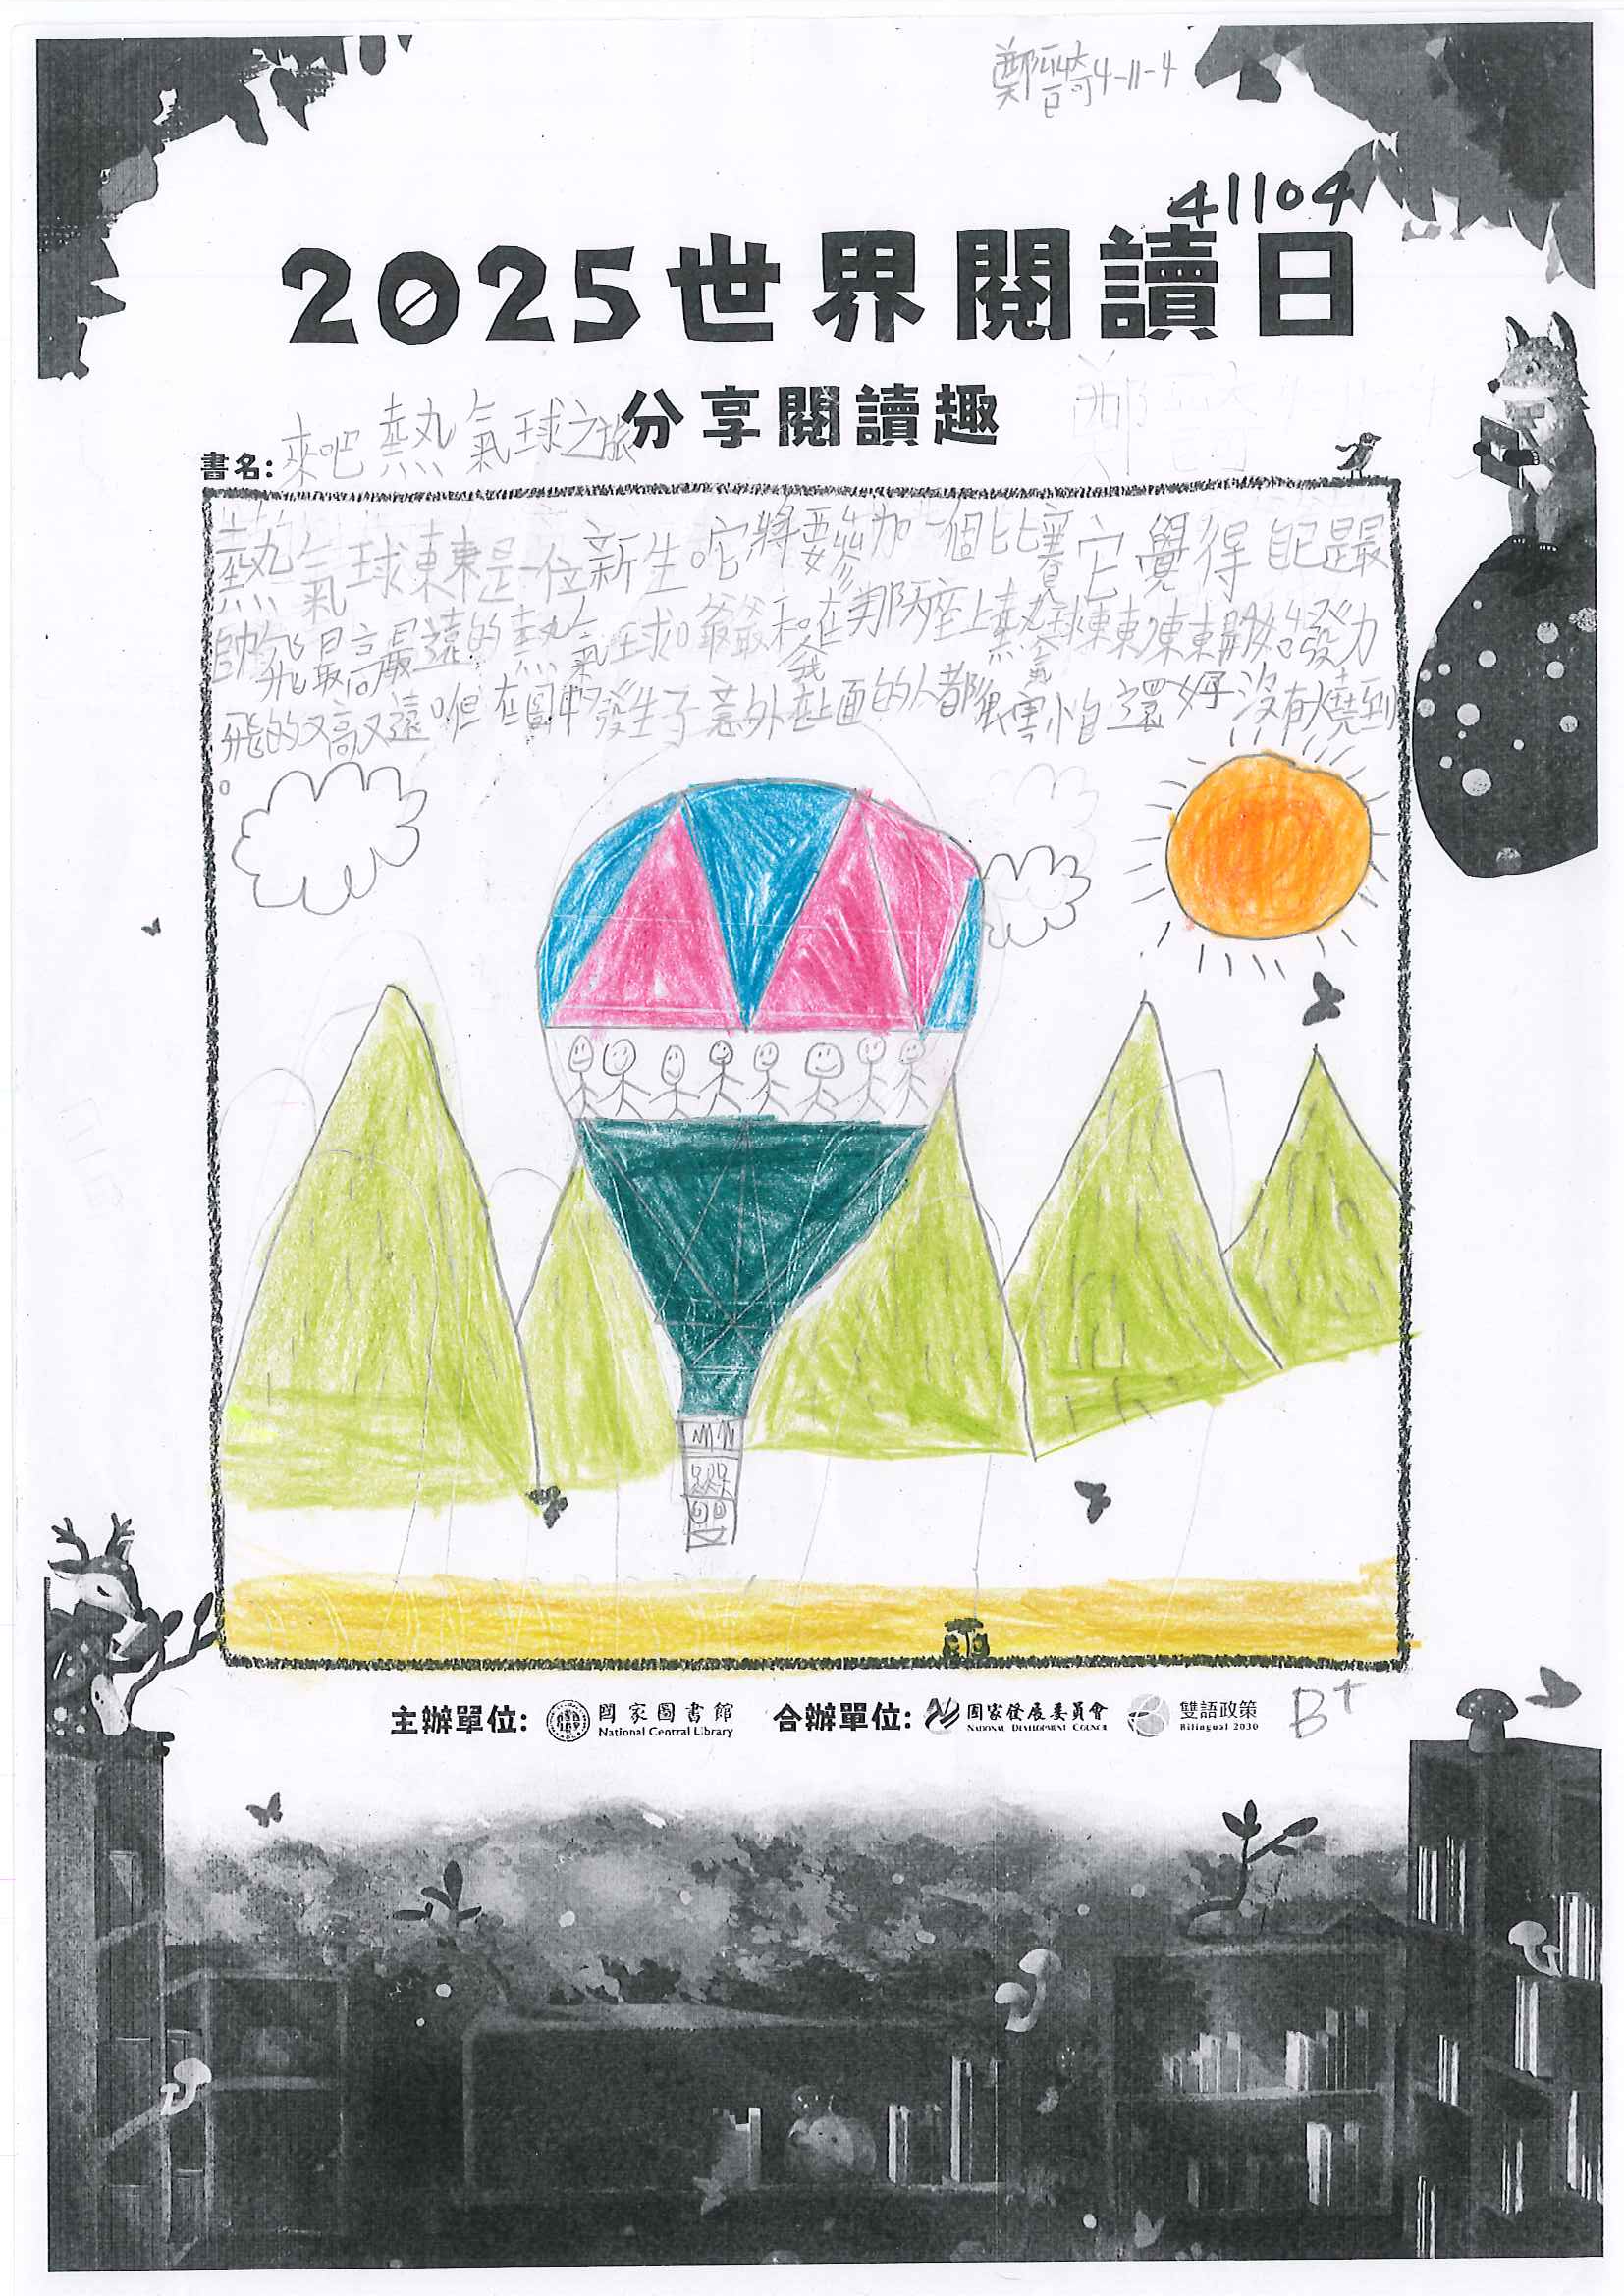 鄭 4-11-4
41104
2025世界閱讀日
分享閱讀趣
書名:來吧熱氣球之旅
熱氣球東東是一位新生。它將要參加一個比賽它覺得自己是最
帥飛最高最遠的熱氣球。爺爺和我在那座上熱氣球東東東東開始發力
飛的又高又遠。但在圖中發生了意外在上面的人都很害怕還好沒有燒到
。
主辦單位: 國家圖書館 National Central Library 合辦單位: 國家發展委員會 National Development Council 雙語政策 Bilingual 2030
B+